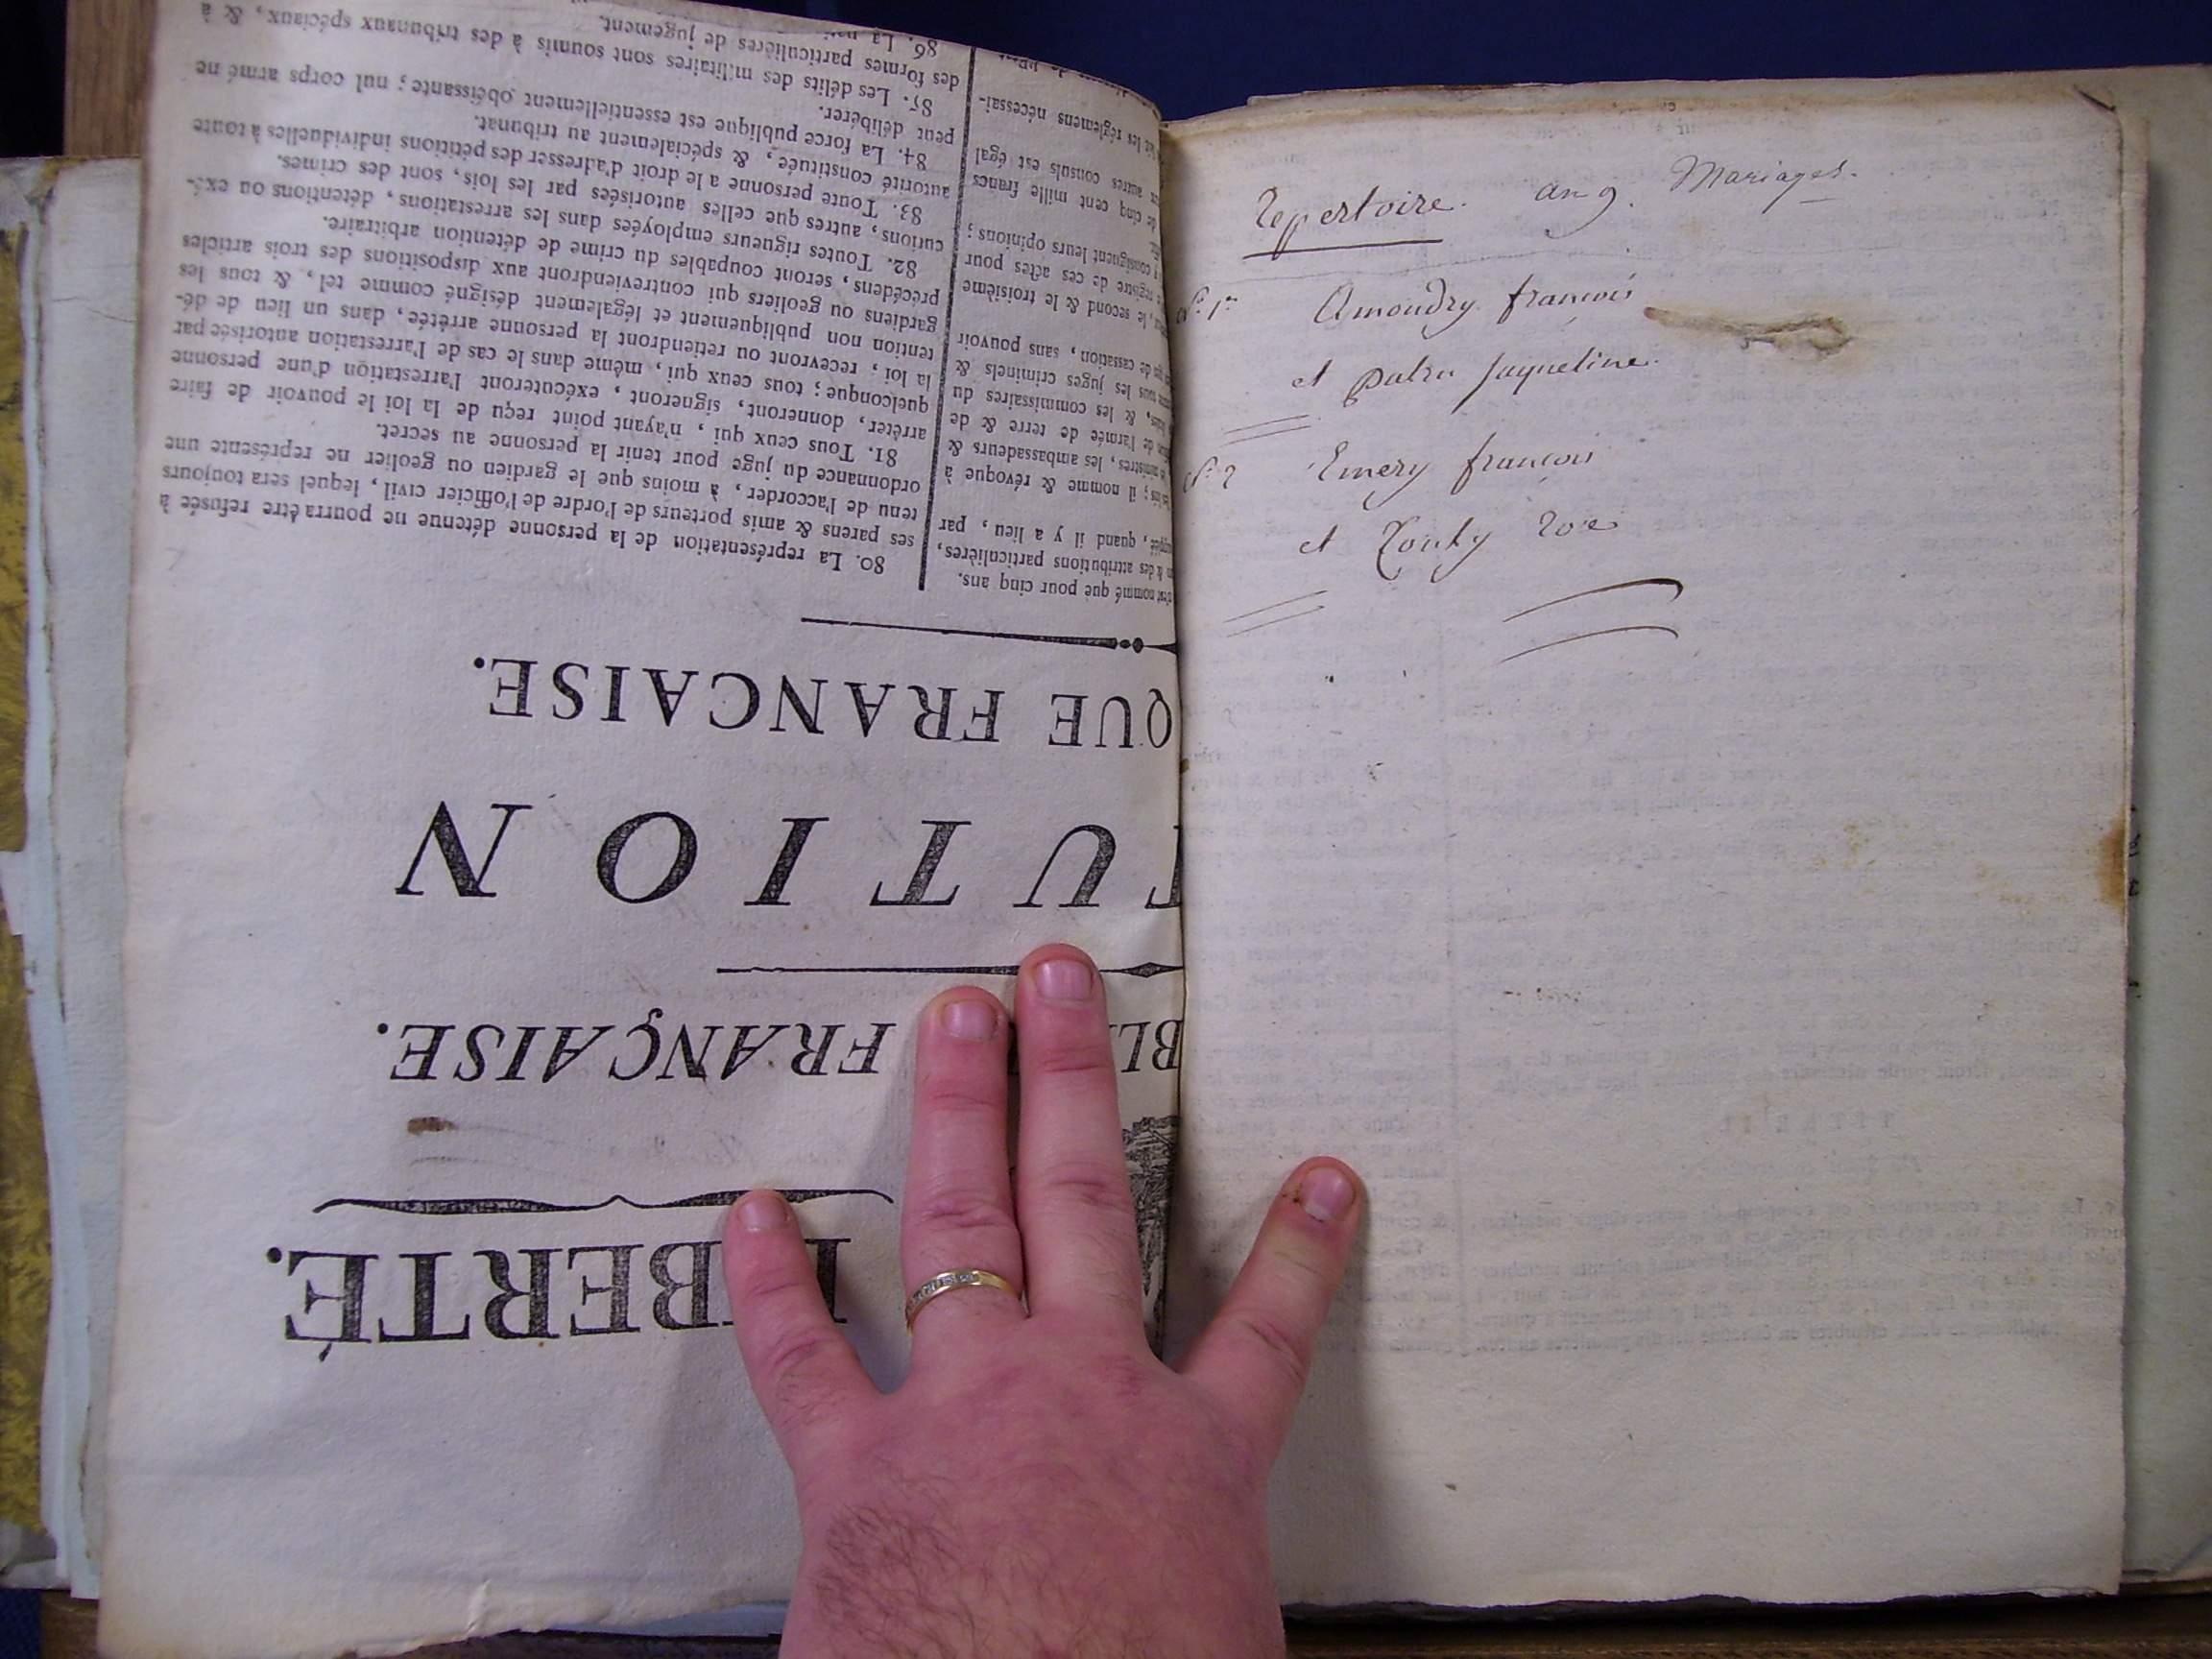 LIBERTÉ.
FRANÇAISE.
TUTION
QUE FRANCAISE.
n'est nommé que pour cinq ans.
& des attributions particulières,
quand il y a lieu, par
il nomme & révoque à
ministres, les ambassadeurs &
de l'armée de terre & de
& les commissaires du
tous les juges criminels &
de cassation, sans pouvoir
le second & le troisième
registre de ces actes pour
consiguent leurs opinions;
de cinq cent mille francs
autres consuls est égal
les réglemens nécessai-
80. La représentation de la personne détenue ne pourra être refusée à
ses parens & amis porteurs de l'ordre de l'officier civil, lequel sera toujours
tenu de l'accorder, à moins que le gardien ou geolier ne représente une
ordonnance du juge pour tenir la personne au secret.
81. Tous ceux qui, n'ayant point reçu de la loi le pouvoir de faire
arrêter, donneront, signeront, exécuteront l'arrestation d'une personne
quelconque; tous ceux qui, même dans le cas de l'arrestation autorisée par
la loi, recevront ou retiendront la personne arrêtée, dans un lieu de dé-
tention non publiquement et légalement désigné comme tel, & tous les
gardiens ou geoliers qui contreviendront aux dispositions des trois articles
précédens, seront coupables du crime de détention arbitraire.
82. Toutes rigueurs employées dans les arrestations, détentions ou exé-
cutions, autres que celles autorisées par les lois, sont des crimes.
83. Toute personne a le droit d'adresser des pétitions individuelles à toute
autorité constituée, & spécialement au tribunat.
84. La force publique est essentiellement obéissante; nul corps armé ne
peut délibérer.
85. Les délits des militaires sont soumis à des tribunaux spéciaux, & à
des formes particulières de jugement.
86. La
Repertoire. an 9. Mariages.
N.º 1er Amoudry francois
et patru Jaqueline.
N.º 2 Emery francois
et Rouly Rose